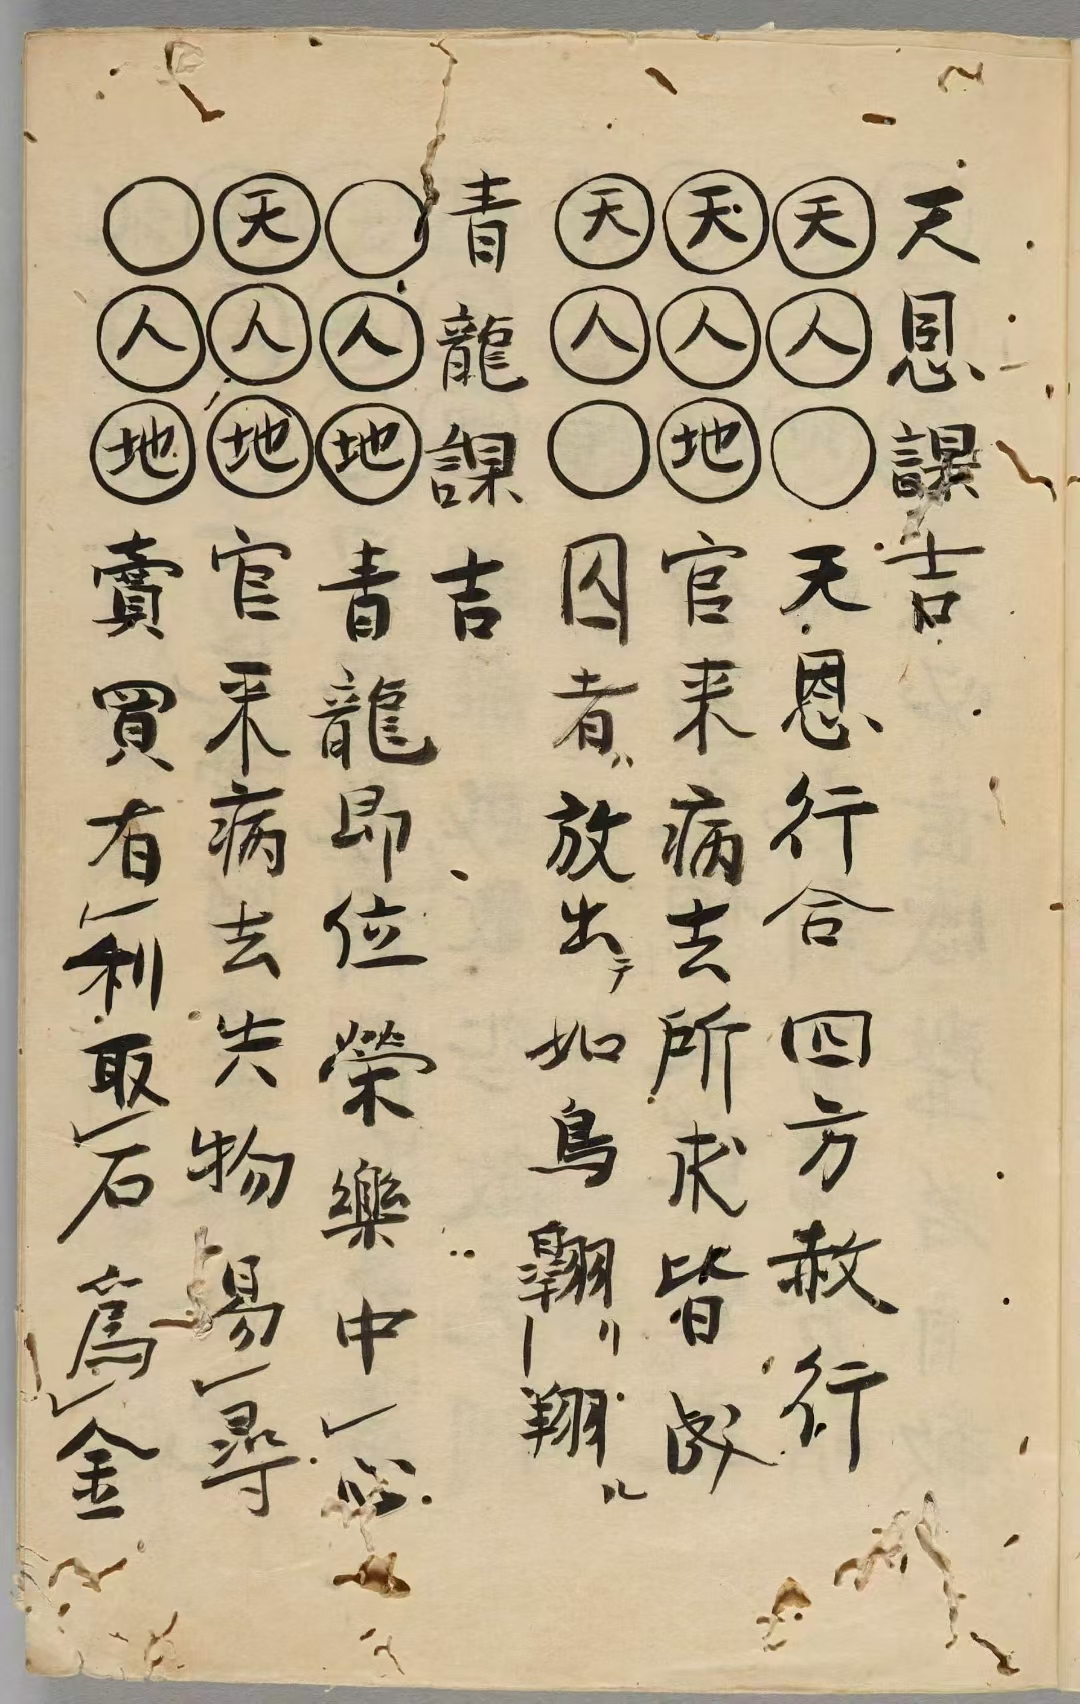 天恩課吉
天人○天恩行合四方赦行
天人地官来病去所求皆成
天人○囚者ハ放出テ如鳥翺リ翔ル
青龍課吉
○人地青龍即位榮樂中レ心
天人地官来病去失物易レ尋
○人地賣買有レ利取レ石為レ金